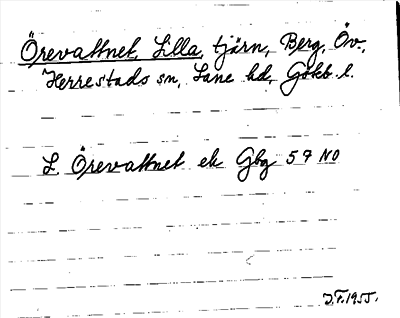 Örevattnet, Lilla, tjärn, Berg, Öv.,
Herrestads sn, Lane hd, Gobb. l.
L. Örevattnet ek Gbg 59 NO
J.F. 1955.